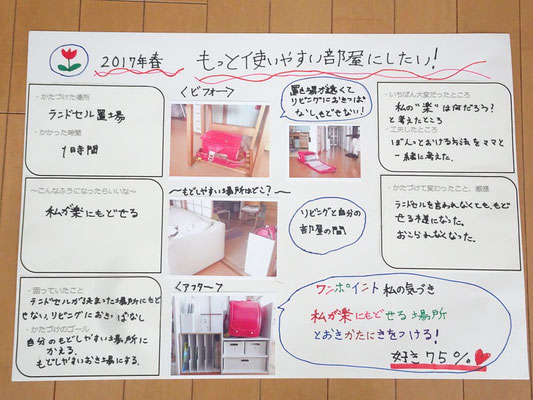 2017年春 もっと使いやすい部屋にしたい!
・かたづけた場所
ランドセル置土場
・かかった時間
1時間
～こんなふうになったらいいな～
私が楽にもどせる
・困っていたこと
ランドセルが決まった場所にもど
せない、リビングにおきっぱなし
・かたづけのゴール
自分のもどしやすい場所に
かえる、
もどしやすいおき場にする。
＜ビフォー＞
置き場が遠くて
リビングにおきっぱ
なし、もどせない!
～もどしやすい場所はどこ?～
リビングと自分の
部屋の間
＜アフター＞
・いちばん大変だったところ
私の"楽"は何だろう?
と考えたところ
・工夫したところ
ぽんっとおける方法をママと
一緒に考えた。
・かたづけて変わったこと、感想
ランドセルを言われなくても、もど
せる様になった。
おこられなくなった。
ワンポイント 私の気づき
私が楽にもどせる場所
とおきかたにきをつける!
好き75%